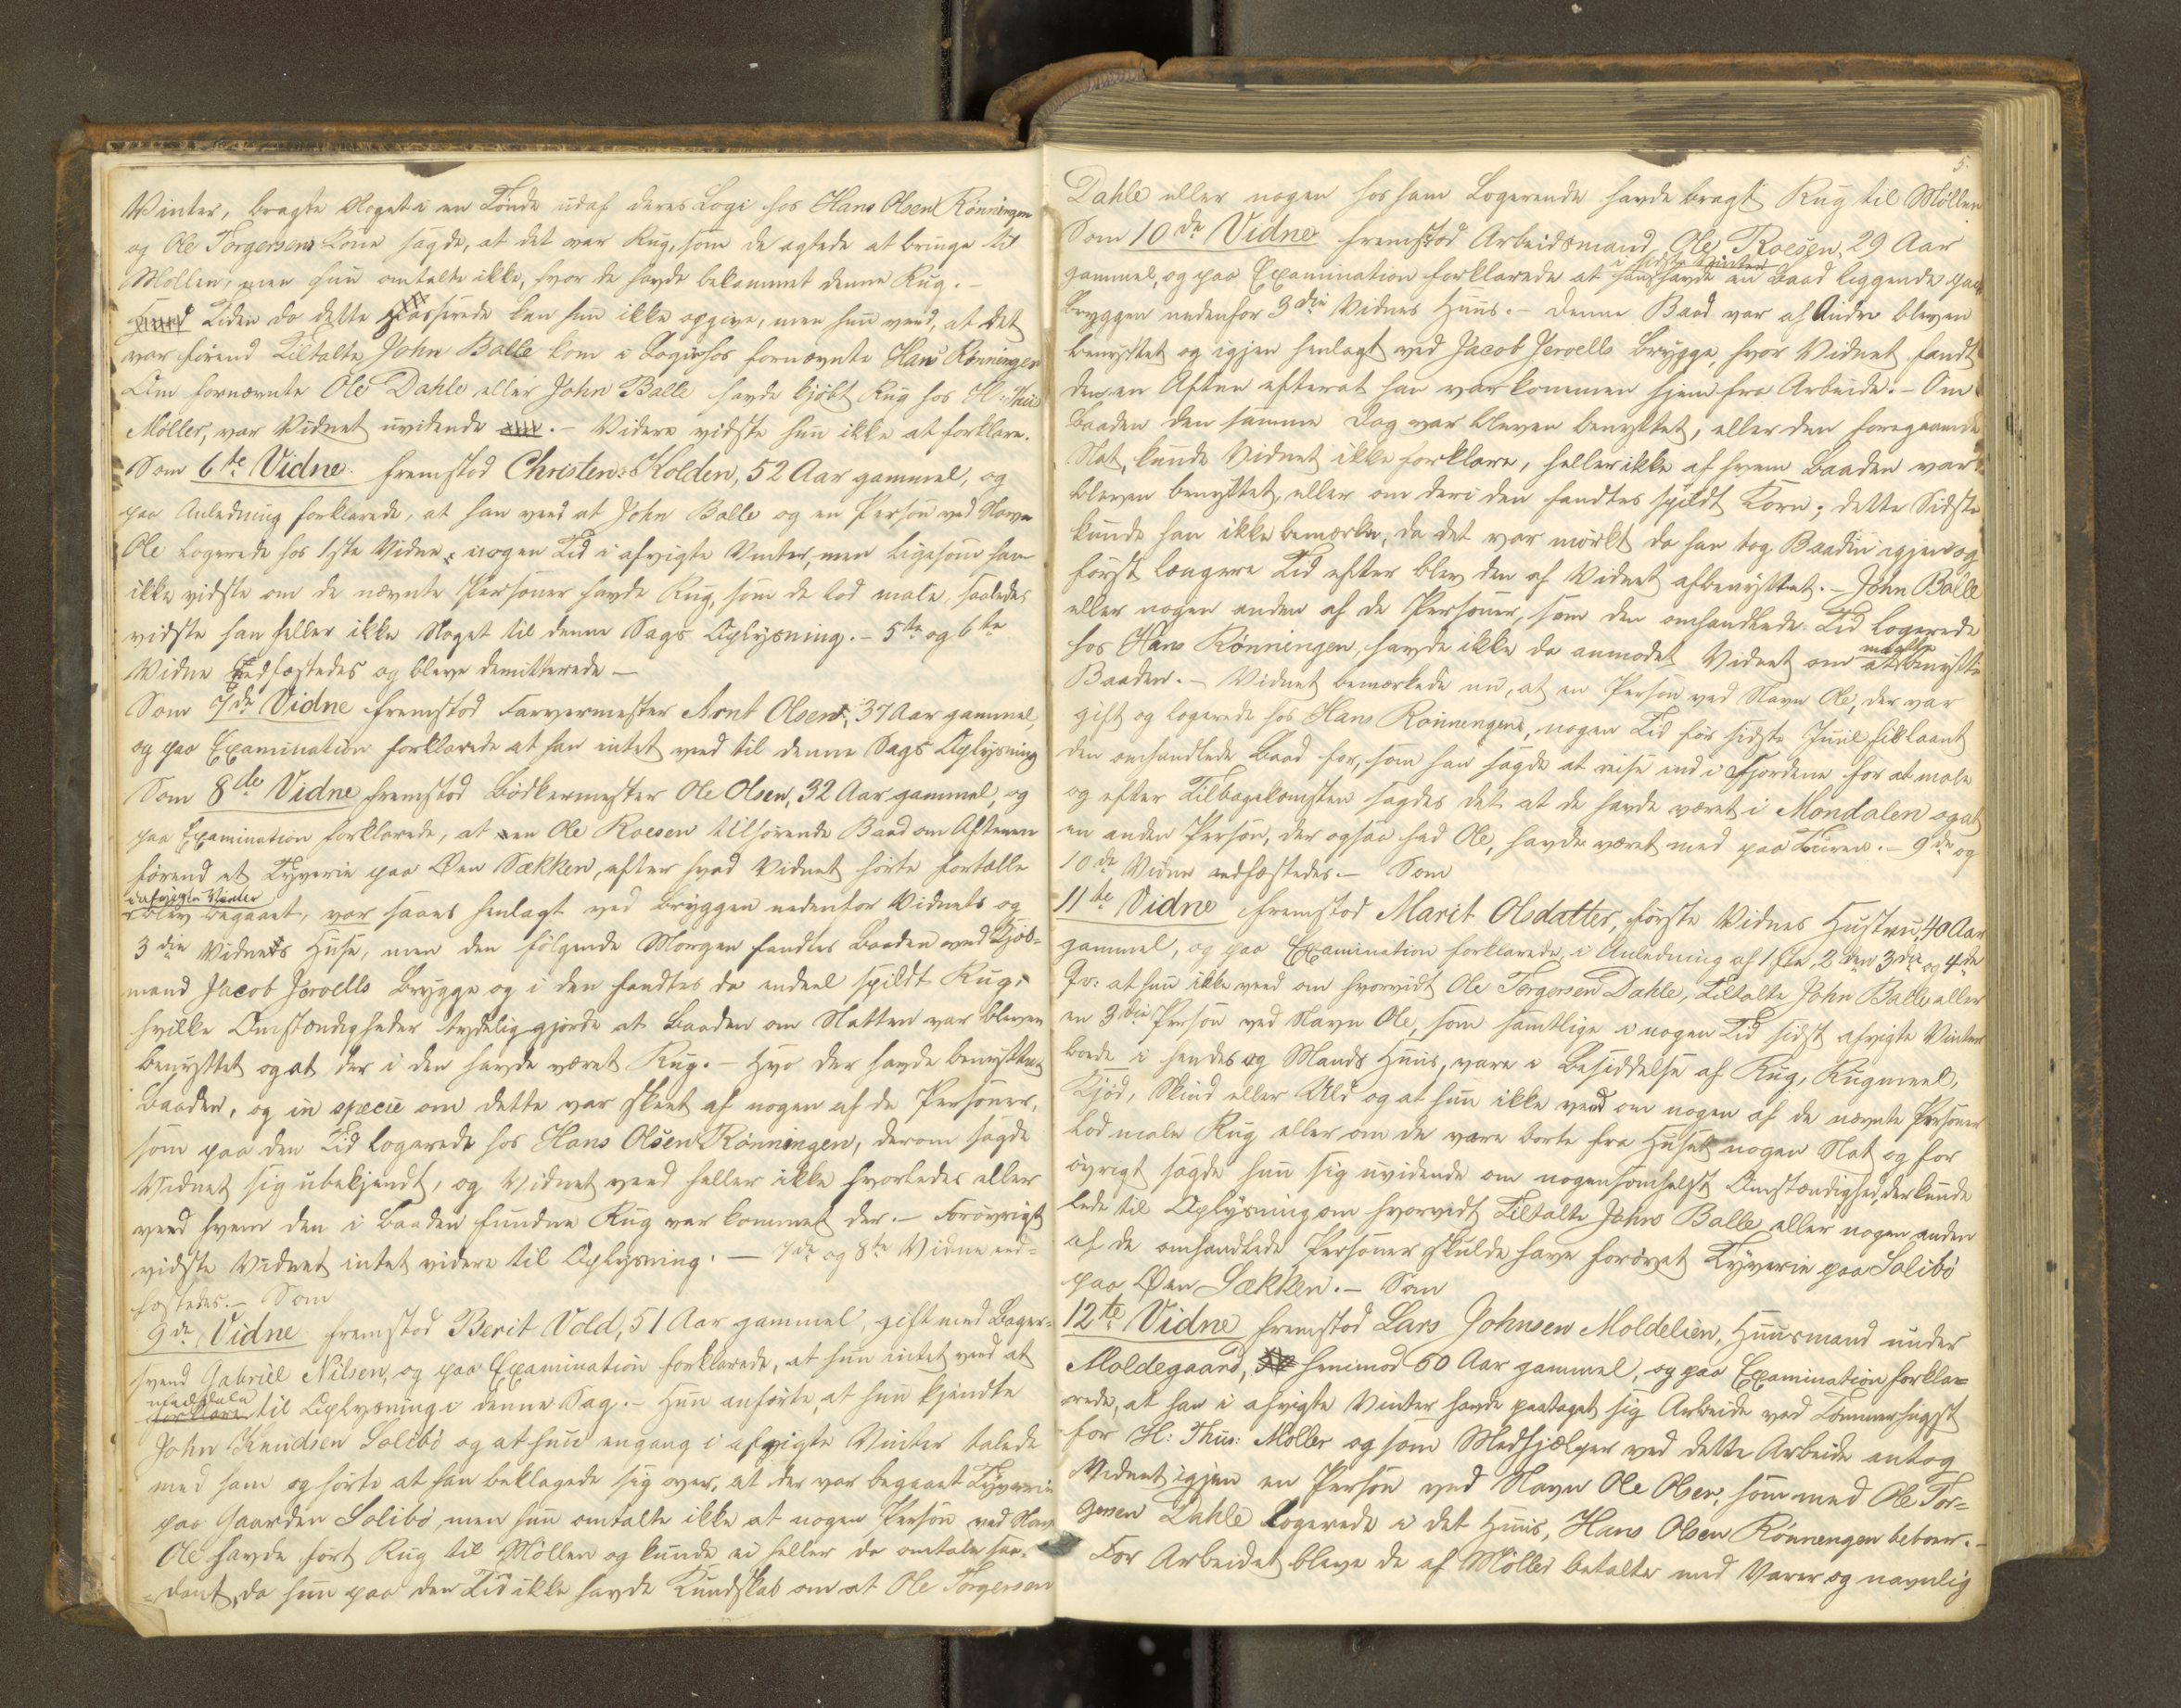 Winter, bragte Noget i en Tønde udaf deres Logi hos Hans Olsen Rønningen
og Ole Torgersens Kone sagde, at det var Rug, som de agtede at bringe til
Møllen, men hun omtalte ikke, hvor de havde bekommet denne Rug. -
Tiden da dette passerede kan hun ikke opgive, men hun veed, at det
var førend Tiltalte John Balle kom i Logie hos fornævnte Hans Rønningen
Om fornævnte Ole Dahle eller John Balle havde kjøbt Rug hos H: Thiis
Møller, var Vidnet uvidende. - Videre vidste hun ikke at forklare.
Som 6te Vidne fremstod Christen Kolden, 52 Aar gammel, og
paa Anledning forklarede, at han veed at John Balle og en Person ved Navn
Ole logerede hos 1ste Vidne nogen Tid i afvigte Vinter, men ligesom han
ikke vidste om de nævnte Personer havde Rug, som de lod male, saaledes
vidste han heller ikke Noget til denne Sags Oplysning. - 5te og 6te
Vidne edfæstedes og bleve demitterede -
Som 7de Vidne fremstod Farvermester Arnt Olsen, 37 Aar gammel,
og paa Examination forklarede at han intet veed til denne Sags Oplysning
Som 8de Vidne fremstod Bødkermester Ole Olsen, 32 Aar gammel, og
paa Examination forklarede, at en Ole Roesen tilhørende Baad om Aftenen
førend et Tyverie paa Øen Sækken, efter hvad Vidnet hørte fortælle
i afvigte Vinter
blev begaaet, var henlagt ved Bryggen nedenfor Vidnets og
3die Vidnets Huse, men den følgende Morgen fandtes Baaden ved Kjøb-
mand Jacob Jervells Brygge og i den fandtes da endeel spildt Rug,
hvilke Omstændigheder tydeliggjorde at Baaden om Natten var bleven
benyttet og at der i den havde været Rug. - Hvo der havde benyttet
Baaden, og in specie om dette var skeet af nogen af de Personer,
som paa den Tid logerede hos Hans Olsen Rønningen, derom sagde
Vidnet sig ubekjendt, og Vidnet veed heller ikke hvorledes eller
ved hvem den i Baaden fundne Rug var kommet der. - Forøvrigt
vidste Vidnet intet videre til Oplysning. - 7de og 8de Vidne ed-
fæstedes. - Som
9de Vidne fremstod Berit Vold, 51 Aar gammel, gift med Bager-
svend Gabriel Nilsen, og paa Examination forklarede, at hun intet veed at
meddele
forklare til Oplysning i denne Sag. - Hun anførte, at hun kjendte
John Knudsen Solibø og at hun engang i afvigte Vinter talede
med ham og hørte at han beklagede sig over, at der var begaaet Tyverie
paa Gaarden Solibø, men hun omtalte ikke at nogen Person ved Navn
Ole havde ført Rug til Møllen og kunde ei heller da omtale saa-
dant, da hun paa den Tid ikke havde Kundskab om at Ole Torgersen
5.
Dahle eller nogen hos ham Logerende havde bragt Rug til Møllen
Som 10de Vidne fremstod Arbeidsmand Ole Roesen, 29 Aar
i sidste Vinter
gammel, og paa Examination forklarede at han havde en Baad liggende paa
Bryggen nedenfor 3die Vidnes Huus. - Denne Baad var af Andre bleven
benyttet og igjen henlagt ved Jacob Jervells Brygge, hvor Vidnet fandt
den en Aften efterat han var kommen hjem fra Arbeide. - Om
Baaden den samme Dag var bleven benyttet, eller den foregaaende
Nat, kunde Vidnet ikke forklare, heller ikke af hvem Baaden var
bleven benyttet, eller om deri den fandtes spildt Korn; dette Sidste
kunde han ikke bemærke, da det var mørkt da han tog Baaden igjen og
først længere Tid efter blev den af Vidnet afbenyttet. - John Balle
eller nogen anden af de Personer, som den omhandlede Tid logerede
hos Hans Rønningen, havde ikke da anmodet Vidnet om at
maatte
benytte
Baaden. - Vidnet bemærkede nu, at en Person ved Navn Ole, der var
gift og logerede hos Hans Rønningen, nogen Tid før sidste Juul fik laant
den omhandlede Baad for, som han sagde at reise ind i Fjordene for at male
og efter Tilbagekomsten sagdes det at de havde været i Mondalen og at
en anden Person, der ogsaa hed Ole, havde været med paa Turen. - 9de og
10de Vidne edfæstedes. - Som
11te Vidne fremstod Marit Olsdatter, første Vidnes Hustru, 40 Aar
gammel, og paa Examination forklarede, i Anledning af 1ste, 2den 3die og 4de
Qv: at hun ikke veed om hvorvidt Ole Torgersen Dahle, Tiltalte John Balle eller
en 3die Person ved Navn Ole, som samtlige i nogen Tid sidst afvigte Vinter
boede i hendes og Mands Huus, vare i Besiddelse af Rug, Rugmeel,
Kjød, Skind eller Uld og at hun ikke veed om nogen af de nævnte Personer
lod male Rug eller om de vare borte fra Huset nogen Nat og for
øvrigt sagde hun sig uvidende om nogensomhelst Omstændighed, der kunde
lede til Oplysning om hvorvidt Tiltalte John Balle eller nogen anden
af de omhandlede Personer skulde have forøvet Tyverie paa Solibø
paa Øen Sækken. - Som
12te Vidne fremstod Lars Johnsen Moldelien, Huusmand under
Moldegaard, henimod 60 Aar gammel, og paa Examination forkla-
rede, at han i afvigte Vinter havde paataget sig Arbeide ved Tømmerhugst
for H: Thiis: Møller og som Medhjælper ved dette Arbeide antog
Vidnet igjen en Person ved Navn Ole Olsen, som med Ole Tor-
gersen Dahle logerede i det Huus, Hans Olsen Rønnengen beboer. -
For Arbeidet bleve de af Møller betalte med Varer og navnlig